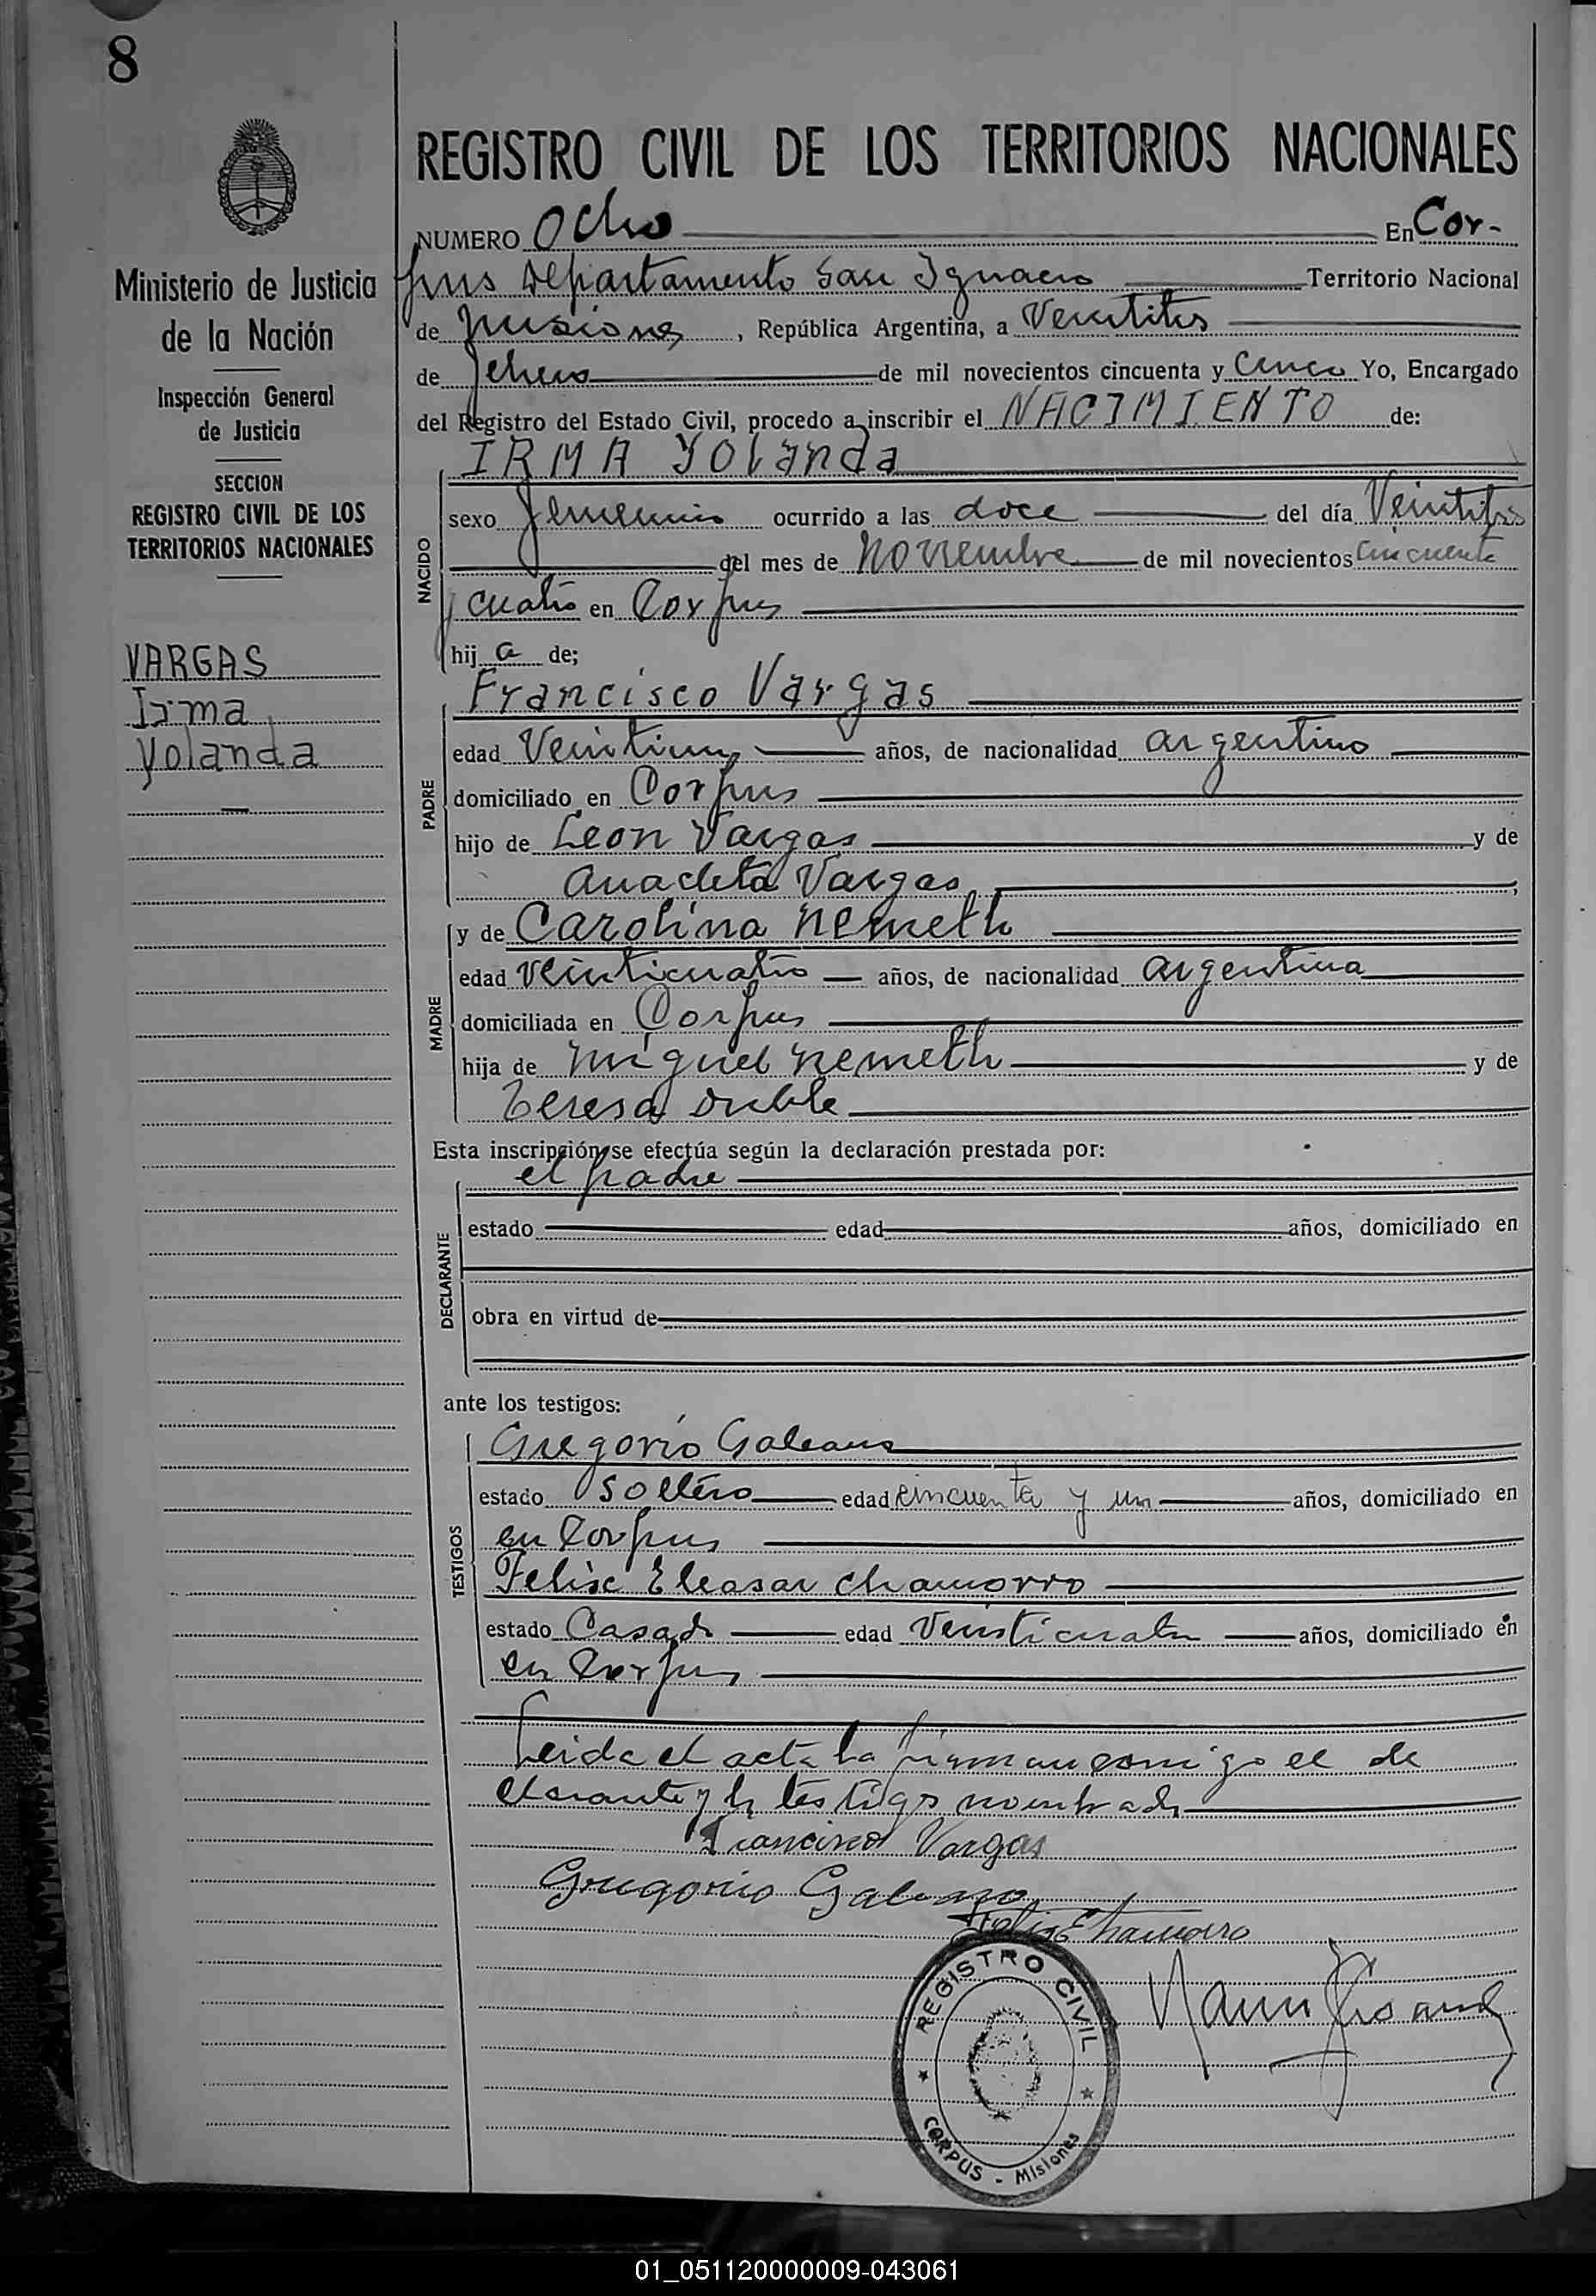 8
REGISTRO CIVIL DE LOS TERRITORIOS NACIONALES
NUMERO Ocho En Cor-
pus Departamento San Ignacio Territorio Nacional
de Misiones, República Argentina, a Veintitres
de de mil novecientos cincuenta y Cinco Yo, Encargado
del Registro del Estado Civil, procedo a inscribir el NACIMIENTO de:
IRMA Yolanda
NACIDO
sexo femenino ocurrido a las doce del día Veintitres
del mes de Noviembre de mil novecientos cincuenta
y cuatro en Corpus
hij a de;
PADRE
Francisco Vargas
edad Veintiun años, de nacionalidad argentino
domiciliado en Corpus
hijo de Leon Vargas y de
Anacleta Vargas
MADRE
y de Carolina Nemeth
edad veinticuatro años, de nacionalidad argentina
domiciliada en Corpus
hija de Miguel Nemeth y de
Teresa
Esta inscripción se efectúa según la declaración prestada por:
el padre
DECLARANTE
estado edad años, domiciliado en
obra en virtud de
ante los testigos:
TESTIGOS
Gregorio Galeano
estado soltero edad cincuenta y un años, domiciliado en
en Corpus
Felix Eleasar Chamorro
estado Casado edad Veinticuatro años, domiciliado en
en Corpus
Leida el acta la firman comigo el de
clarante y los testigos nombrados
Francisco Vargas
Gregorio Galeano
Felix E Chamorro
REGISTRO CIVIL
CORPUS - Misiones
Ministerio de Justicia
de la Nación
Inspección General
de Justicia
SECCION
REGISTRO CIVIL DE LOS
TERRITORIOS NACIONALES
VARGAS
Irma
Yolanda
01_051120000009-043061